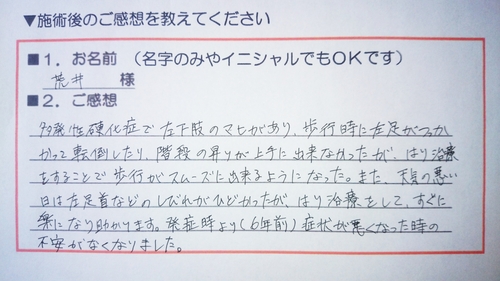 ▼施術後のご感想を教えてください
■１．お名前 （名字のみやイニシャルでもＯＫです）
荒井 様
■２．ご感想
多発性硬化症で左下肢のマヒがあり、歩行時に左足がつっか
かって転倒したり、階段の昇りが上手に出来なかったが、はり治療
をすることで歩行がスムーズに出来るようになった。また、天気の悪い
日は左足首などのしびれがひどかったが、はり治療をして、すぐに
楽になり助かります。発症時より（6年前）症状が悪くなった時の
不安がなくなりました。